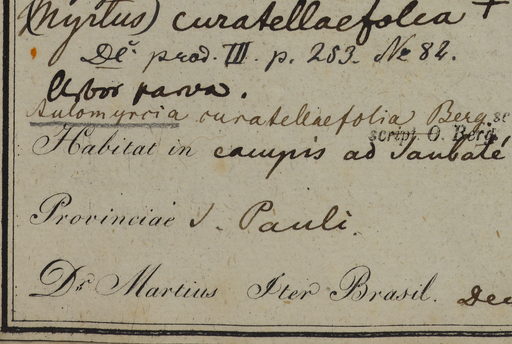 (Myrtus) curatellaefolia +
DC. prod. III. p. 253. No 82.
Arbor parva.
Aulomyrcia curatellaefolia Berg
script. O. Berg.
Habitat in campis ad Taubaté
Provinciae S. Pauli.
Dr. Martius Iter Brasil. Dec